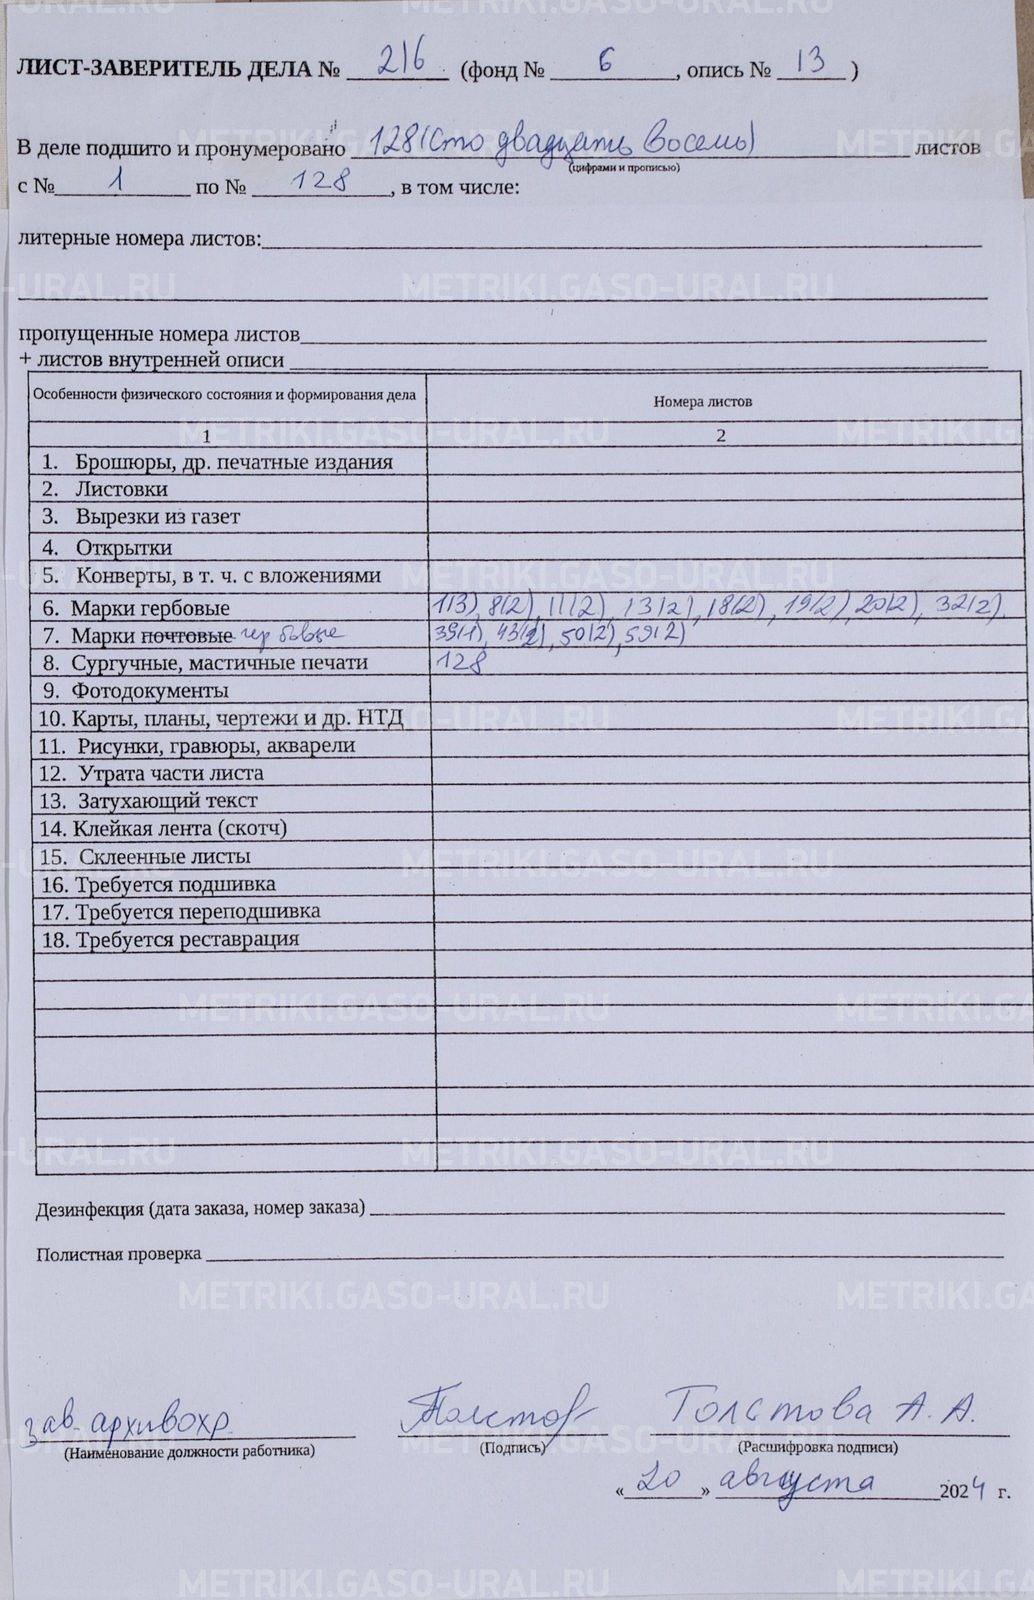 ЛИСТ-ЗАВЕРИТЕЛЬ ДЕЛА № 216 (фонд № 6, опись № 13)
В деле подшито и пронумеровано 128 (Сто двадцать восемь) листов
(цифрами и прописью)
с № 1 по № 128, в том числе:
литерные номера листов:
пропущенные номера листов
+ листов внутренней описи
Особенности физического состояния и формирования дела Номера листов
1 2
1. Брошюры, др. печатные издания
2. Листовки
3. Вырезки из газет
4. Открытки
5. Конверты, в т. ч. с вложениями
6. Марки гербовые 1(3), 8(2), 11(2), 13(2), 18(2), 19(2), 20(2), 32(2),
7. Марки почтовые гербовые 39(1), 43(2), 50(2), 59(2)
8. Сургучные, мастичные печати 128
9. Фотодокументы
10. Карты, планы, чертежи и др. НТД
11. Рисунки, гравюры, акварели
12. Утрата части листа
13. Затухающий текст
14. Клейкая лента (скотч)
15. Склеенные листы
16. Требуется подшивка
17. Требуется переподшивка
18. Требуется реставрация
Дезинфекция (дата заказа, номер заказа)
Полистная проверка
зав. архивохр. Толстов Толстова А. А.
(Наименование должности работника) (Подпись) (Расшифровка подписи)
«20» августа 2024 г.
METRIKI.GASO-URAL.RU